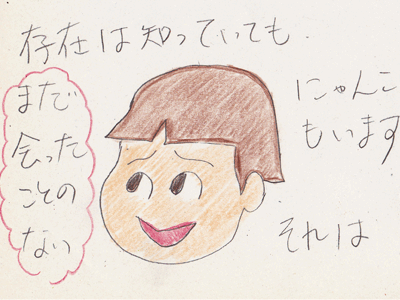 存在は知っていても
まだ
会った
ことの
ない
にゃんこ
もいます
それは